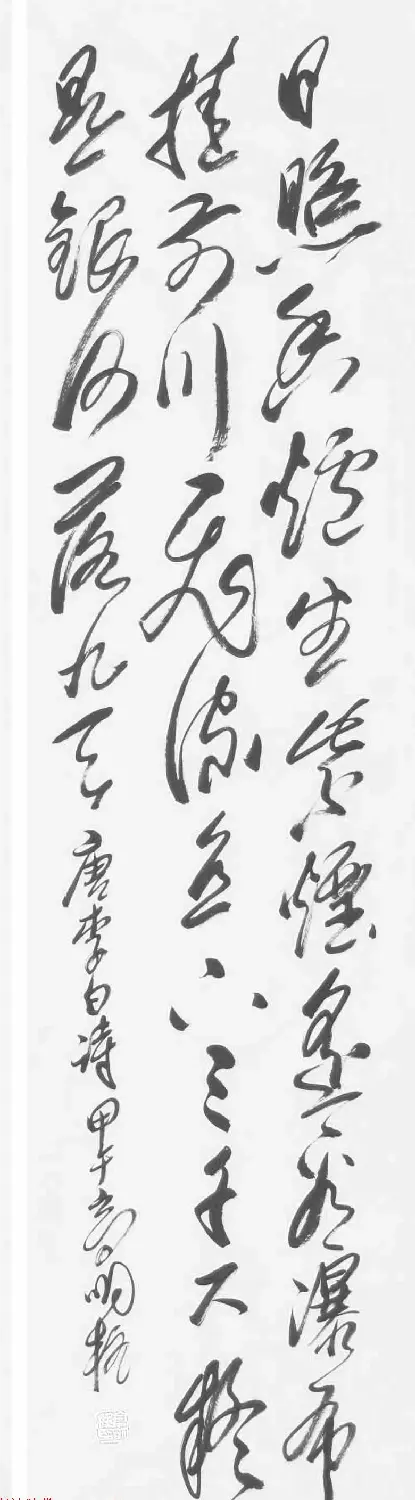 日照香爐生紫煙遙看瀑布
挂前川飛流直下三千尺疑
是銀河落九天 唐李白詩 甲午 明